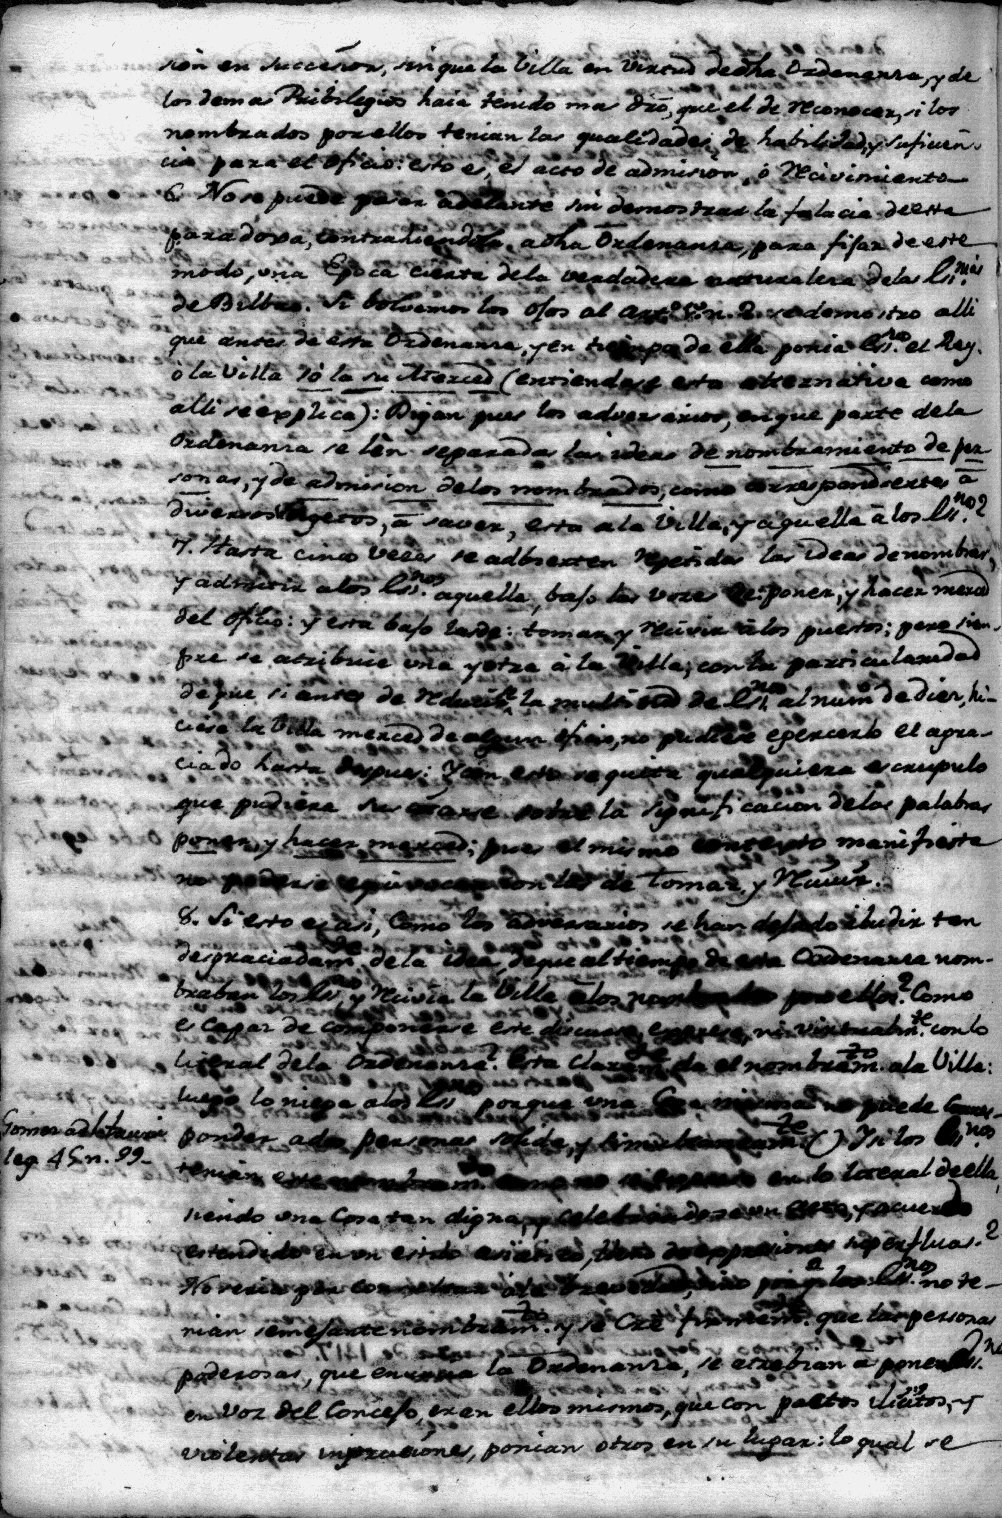 sion en succesion, sin que la Villa en virtud de dha Ordenanza, y de
los demas Pribilegios haia tenido mas dro, que el de reconocer, si los
nombrados por ellos tenian las qualidades de habilidad, y suficien-
cia para el oficio: esto es, el acto de admision, ó recivimiento
6. No se puede pasar adelante sin demostrar la falacia de esta
paradoxa, contrahiendola a dha Ordenanza, para fijar de este
modo, una Epoca cierta de la verdadera naturaleza de las Ess.nias
de Bilbao. Si bolvemos los ojos al n. 2. se demostro alli
que antes de esta Ordenanza, y en tiempo de ella ponia Ess.nos el Rey,
o la Villa so la su Merced (entiendase esta alternativa como
alli se explica): Digan pues los adversarios, en que parte de la
Ordenanza se lèn separadas las ideas de nombramiento de per
sonas, y de admision de los nombrados, como correspondientes à
diversos sugetos, à saver, esta a la Villa, y aquella à los Ess.nos?
7. Hasta cinco veces se advierten repetidas las ideas de nombrar,
y admitir a los Ess.nos aquella, bajo las voces de: poner, y hacer merced
del oficio: y esta bajo las de: tomar, y recivir à los puestos; pero siem-
pre se atribuie una y otra à la Villa; con la particularidad
de que si antes de reducirse la multitud de Ess.nos al num.o de diez, hi-
ciese la Villa merced de algun oficio, no pudiese egercerlo el agra-
ciado hasta despues: Y con esto se quita qualquiera escrupulo
que pudiera suscitarse sobre la significacion de las palabras
poner, y hacer merced; pues el mismo contexto manifiesta
no poderse equivocar con las de tomar, y recivir.
8. Si esto es asi, como los adversarios se han dejado iludir tan
desgraciadam.te de la idea, de que al tiempo de esta Ordenanza nom-
braban los Ess.nos, y recivia la Villa à los nombrados por ellos? Como
es capaz de componerse este discurso expresa, ni virtualm.te con lo
literal de la Ordenanza? Esta claram.te da el nombram.to a la Villa:
luego lo niega a los Ess.nos porque una Cosa misma no puede corres
ponder a dos personas solide, y simultaneam.te () Y si los Ess.nos
Gomez ad l Tauri
leg. 45. n. 99.
tenian este nombram.to como no se expresa en lo literal de ella,
siendo una Cosa tan digna, y celebrandose un acto, y acuerdo
estendido en un estilo lleno de expresiones superfluas?
No seria por la brevedad, sino porq.e los Ess.nos no te-
nian semejante nombram.to y se Cré firmem.te que las personas
poderosas, que enuncia la Ordenanza, se atrebian à poner Ess.nos
en voz del Concejo, eran ellos mismos, que con pactos ilicitos, y
violentas, ponian otros en su lugar: lo qual se